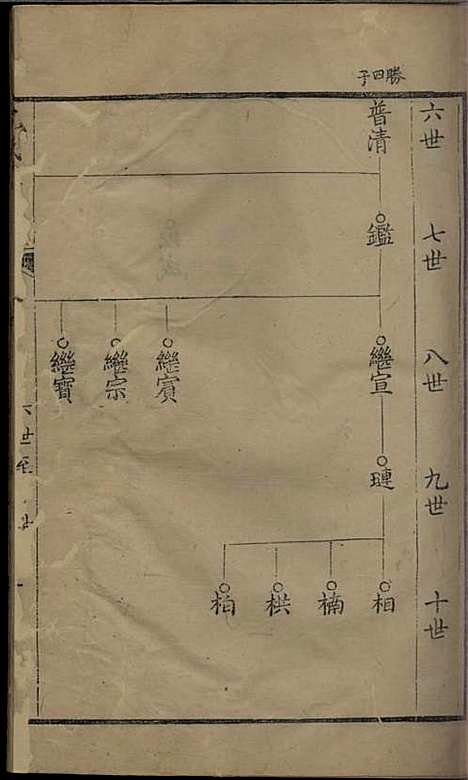 勝四子
六世
普清
七世
鑑
八世
繼宣
繼賓
繼宗
繼寶
九世
璉
十世
相
楠
栱
柏